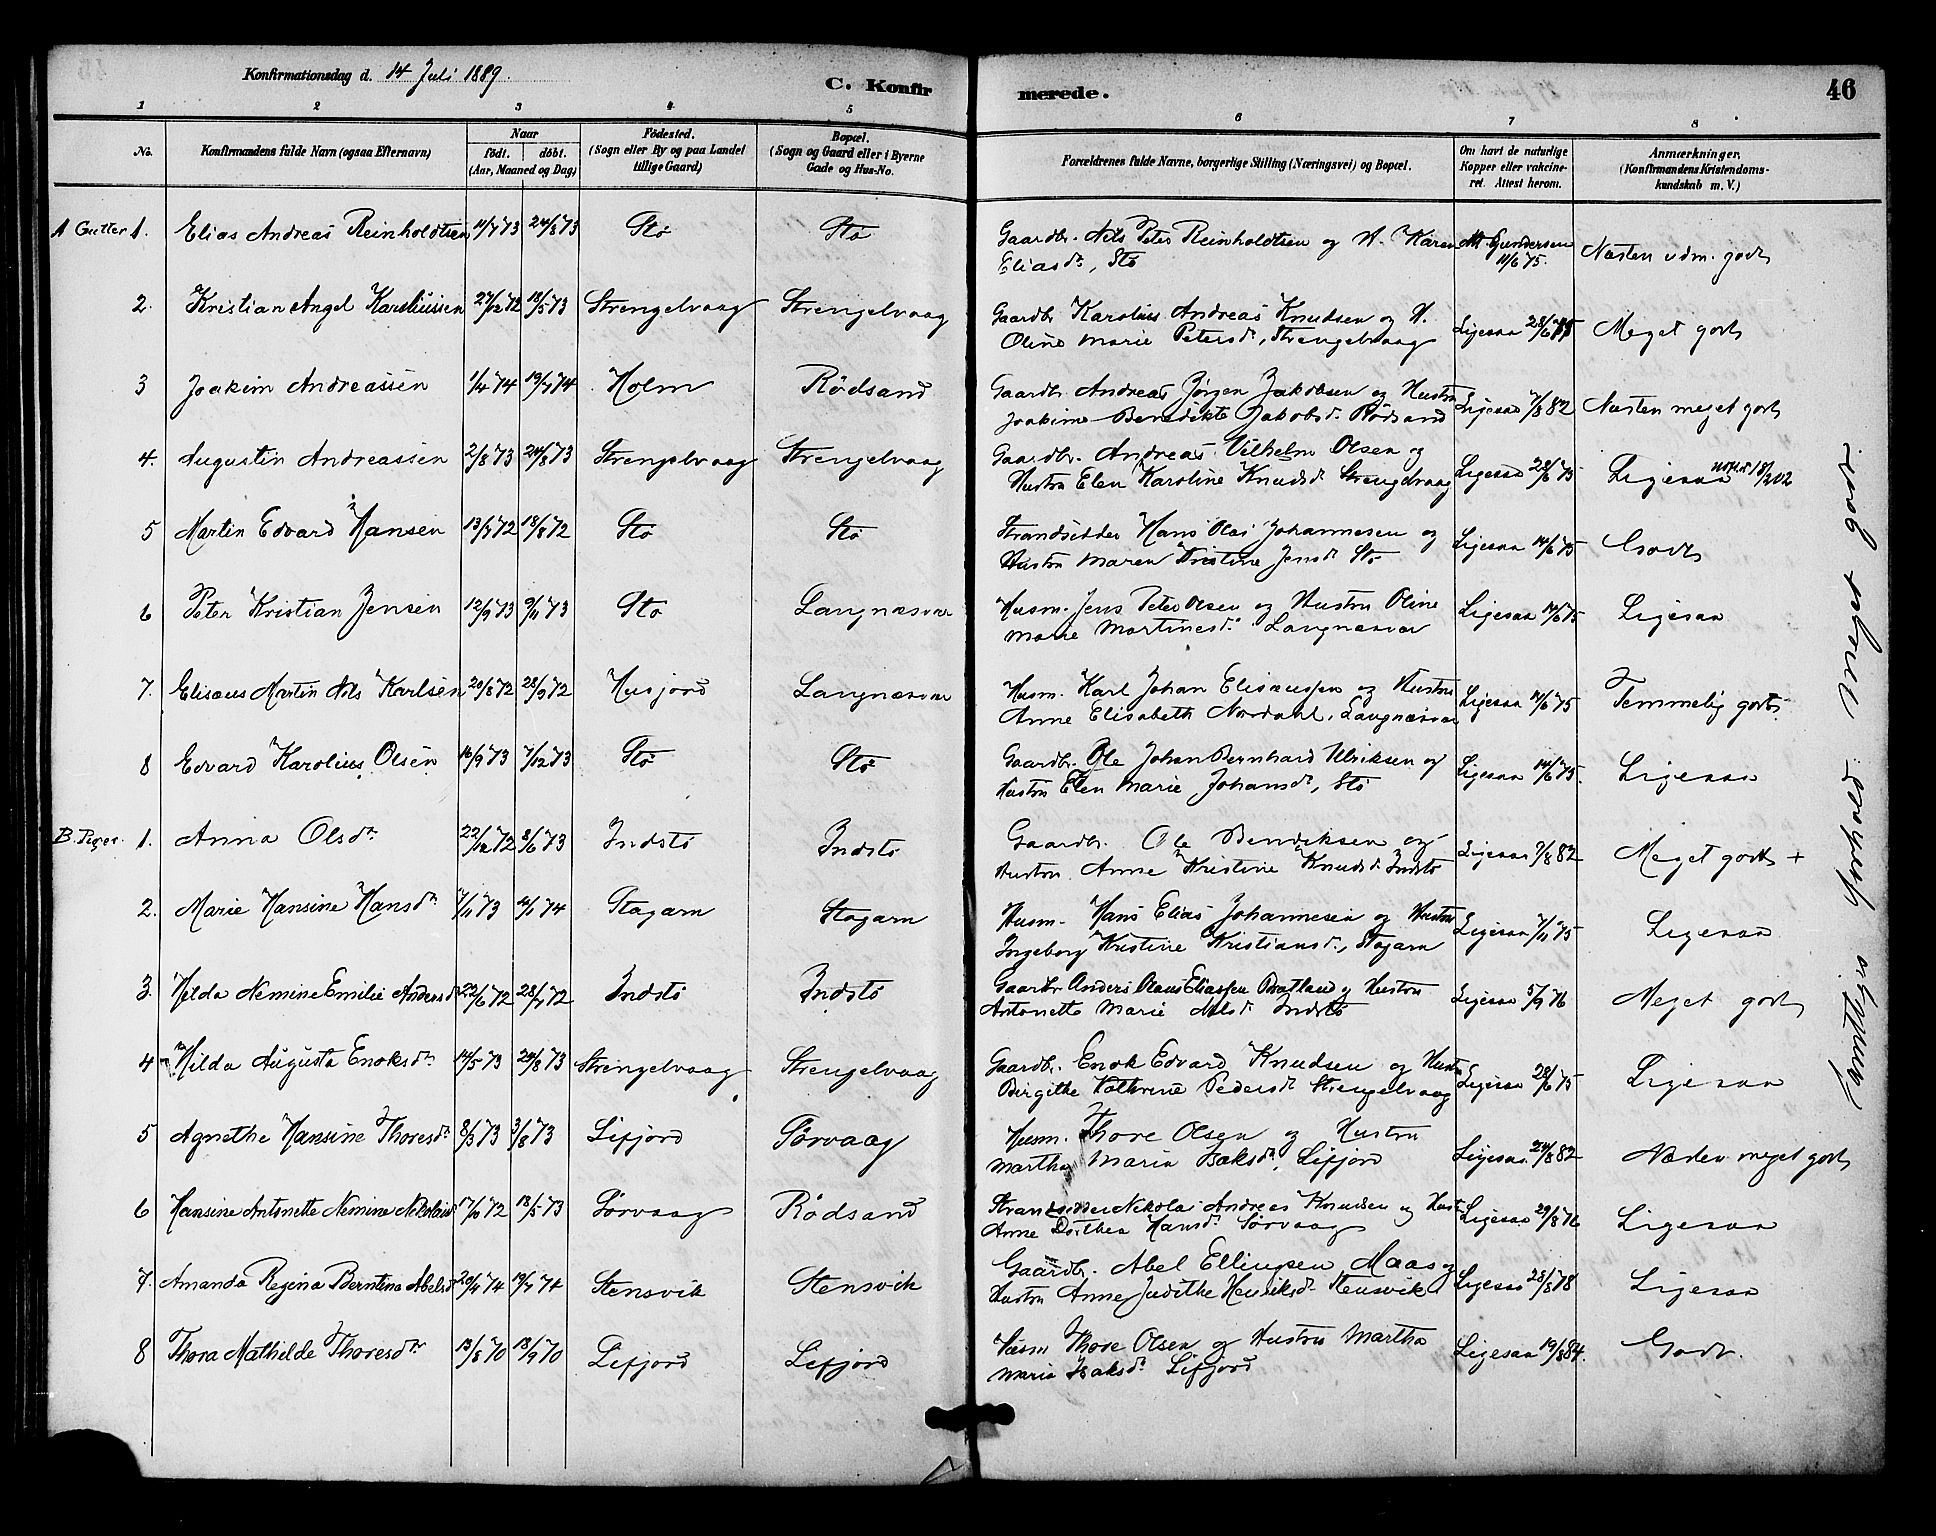 Konfirmationsdag d. 14 Juli 1889.
C. Konfirmerede.
46
1 2 3 4 5 6 7 8
No.
Konfirmandens fulde Navn (ogsaa Efternavn)
Naar
født. døbt.
(Aar, Maaned og Dag)
Fødested.
(Sogn eller By og paa Landet
tillige Gaard)
Bopæl.
(Sogn og Gaard eller i Byerne
Gade og Hus-No.
Forældrenes fulde Navne, borgerlige Stilling (Næringsvei) og Bopæl.
Om havt de naturlige
Kopper eller vakcine-
ret. Attest herom.
Anmærkninger.
(Konfirmandens Kristendoms-
kundskab m. V.)
A Gutter 1. Elias Andreas Reinholdtsen 11/7 73 24/8 73 Stø Stø Gaardbr. Nils Peter Reinholdtsen og H. Karen Gundersen
Eliasdr, Stø 11/6 75. Næsten udm. godt
2. Kristian Angel Karoliussen 27/12 72 18/5 73 Strengelvaag Strengelvaag Gaardbr Karolius Andreas Knudsen og H.
Oline Marie Petersdr, Strengelvaag Ligesaa 28/6 75 Meget godt
3 Joakim Andreassen 1/4 74 19/7 74 Holm Rödsand Gaardbr. Andreas Jörgen Jakobsen og Hustru
Joakime Benedikte Jakobsdr Rödsand Ligesaa 7/8 82 Næsten meget godt
4. Augustin Andreassen 2/8 73 24/8 73 Strengelvaag Strengelvaag Gaardbr. Andreas Vilhelm Olsen og
Hustru Elen Karoline Knudsdr Strengelvaag Ligesaa 28/6 75 Ligesaa 18/2 02
5 Martin Edvard Hansen 13/7 72 18/8 72 Stø Stø Strandsidder Hans Olai Johannesen og
Hustru Maren Kristine Jensdr Stø Ligesaa 14/6 75 Godt
6 Peter Kristian Jensen 12/9 73 9/11 73 Stø Langnæsvær Husm. Jens Peter Olsen og Hustru Oline
Marie Martinesdr Langnæsvær Ligesaa 14/6 75 Ligesaa
7. Elisæus Martin Nils Karlsen 20/8 72 28/9 72 Husjord Langnæsvær Husm. Karl Johan Elisæussen og Hustru
Anne Elisabeth Nordahl, Langnæsvær Ligesaa 14/6 75 Temmelig godt
8 Edvard Karolius Olsen 16/9 73 7/12 73 Stø Stø Gaardbr. Ole Johan Bernhard Ulriksen og
Hustru Elen Marie Johansdr, Stø Ligesaa 14/6 75. Ligesaa
B. Piger. 1. Anna Olsdr 22/12 72 8/6 73 Indstö Indstö Gaardbr. Ole Bendiksen og
Hustru Anne Kristine Knudsdr Indstö Ligesaa 7/8 82 Meget godt +
2. Marie Hansine Hansdr 7/11 73 11/1 74 Stagarn Stagarn Husm. Hans Elias Johannesen og Hustru
Ingeborg Kristine Kristiansdr, Stagarn Ligesaa 7/11 75 Ligesaa
3. Hilda Nemine Emilie Andersdr 22/6 72 28/7 72 Indstö Indstö Gaardbr Anders Olaus Eliassen Bratland og Hustru
Antonette Marie Nilsdr Indstö Ligesaa 5/9 76 Meget godt
4 Hilda Augusta Enoksdr 14/5 73 24/8 73 Strengelvaag Strengelvaag Gaardbr. Enok Edvard Knudsen og Hustru
Birgithe Kathrine Pedersdr Strengelvaag Ligesaa 28/6 75 Ligesaa
5 Agnethe Hansine Thoresdr 8/3 73 3/8 73 Lifjord Sörvaag Husm. Thore Olsen og Hustru
Martha Maria Isaksdr, Lifjord Ligesaa 24/8 82 Næsten meget godt
6 Hansine Antonette Nemine Nikolaisdr 17/10 72 18/5 73 Sörvaag Rödsand Strandsidder Nikolai Andreas Knudsen og Hustru
Anne Dorthea Hansdr Sörvaag Ligesaa 29/8 76 Ligesaa
7. Amanda Regina Berntina Abelsdr 20/4 74 19/7 74 Stensvik Stensvik Gaardbr. Abel Ellingsen Maas og
Hustru Anne Judithe Henriksdr Stensvik Ligesaa 28/8 78 Ligesaa
8 Thora Mathilde Thoresdr 13/8 70 18/9 70 Lifjord Lifjord Husm Thore Olsen og Hustru Martha
Maria Isaksdr Lifjord Ligesaa 19/8 84. Godt.
Samtliges forhold meget godt.